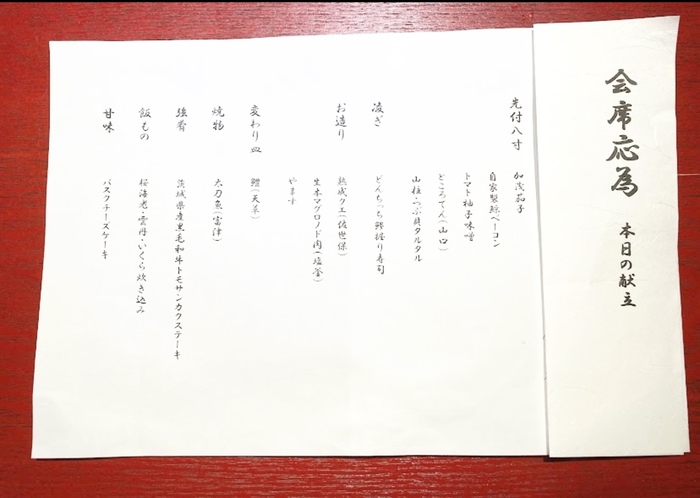 会席応為 本日の献立
先付八寸 加茂茄子
自家製鯨ベーコン
トマト柚子味噌
ところてん(山口)
山桂・つぶ貝タルタル
凌ぎ どんちっち鯵握り寿司
お造り 熟成クエ(佐世保)
生本マグロノド肉(塩釜)
やます
変わり皿 鱧(天草)
焼物 太刀魚(富津)
強肴 茨城県産黒毛和牛トモサンカクステーキ
飯もの 桜海老・雲丹・いくら炊き込み
甘味 バスクチーズケーキ